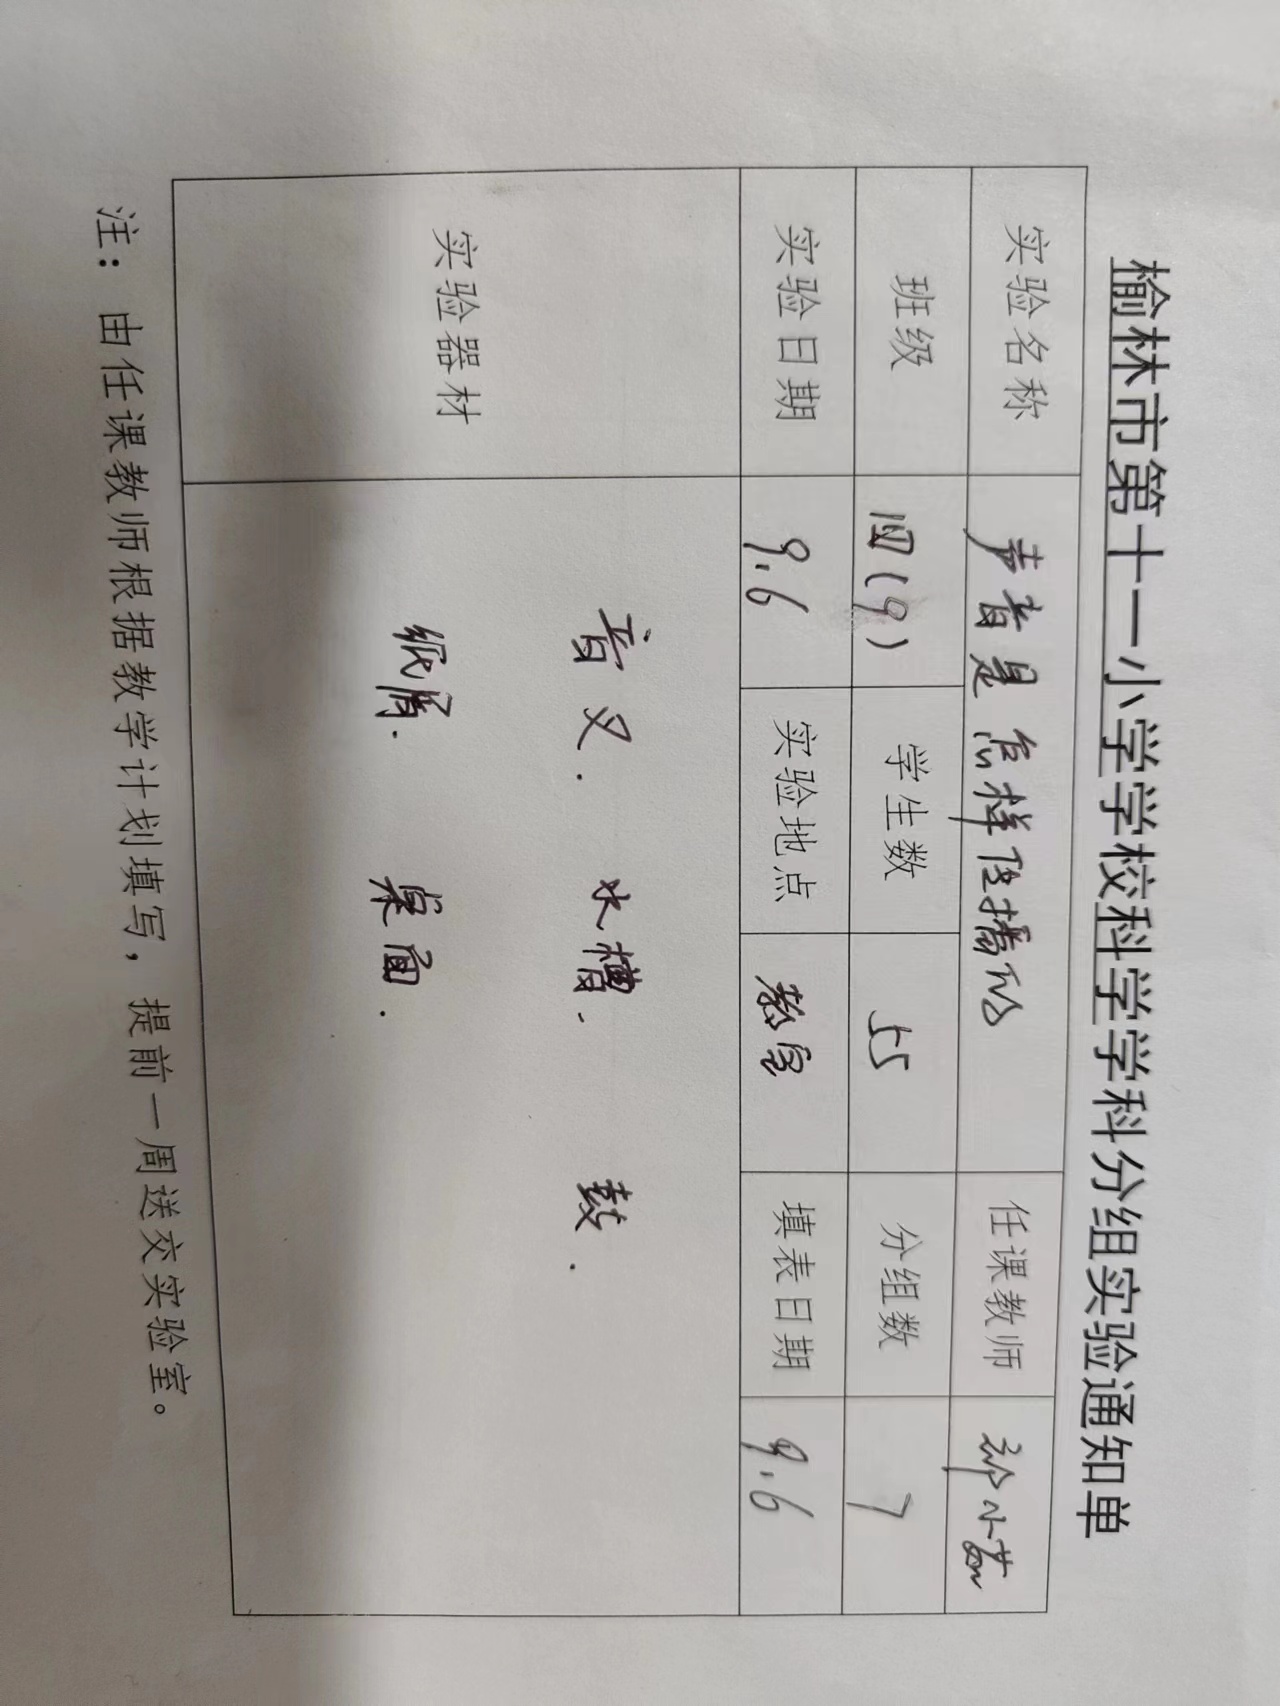 榆林市第十一小学学校科学学科分组实验通知单
实验名称 声音是怎样传播的 任课教师 祁小茹
班级 四(9) 学生数 55 分组数 7
实验日期 9.6 实验地点 教室 填表日期 9.6
实验器材
音叉. 水槽. 鼓.
纸屑. 桌面.
注：由任课教师根据教学计划填写，提前一周送交实验室。